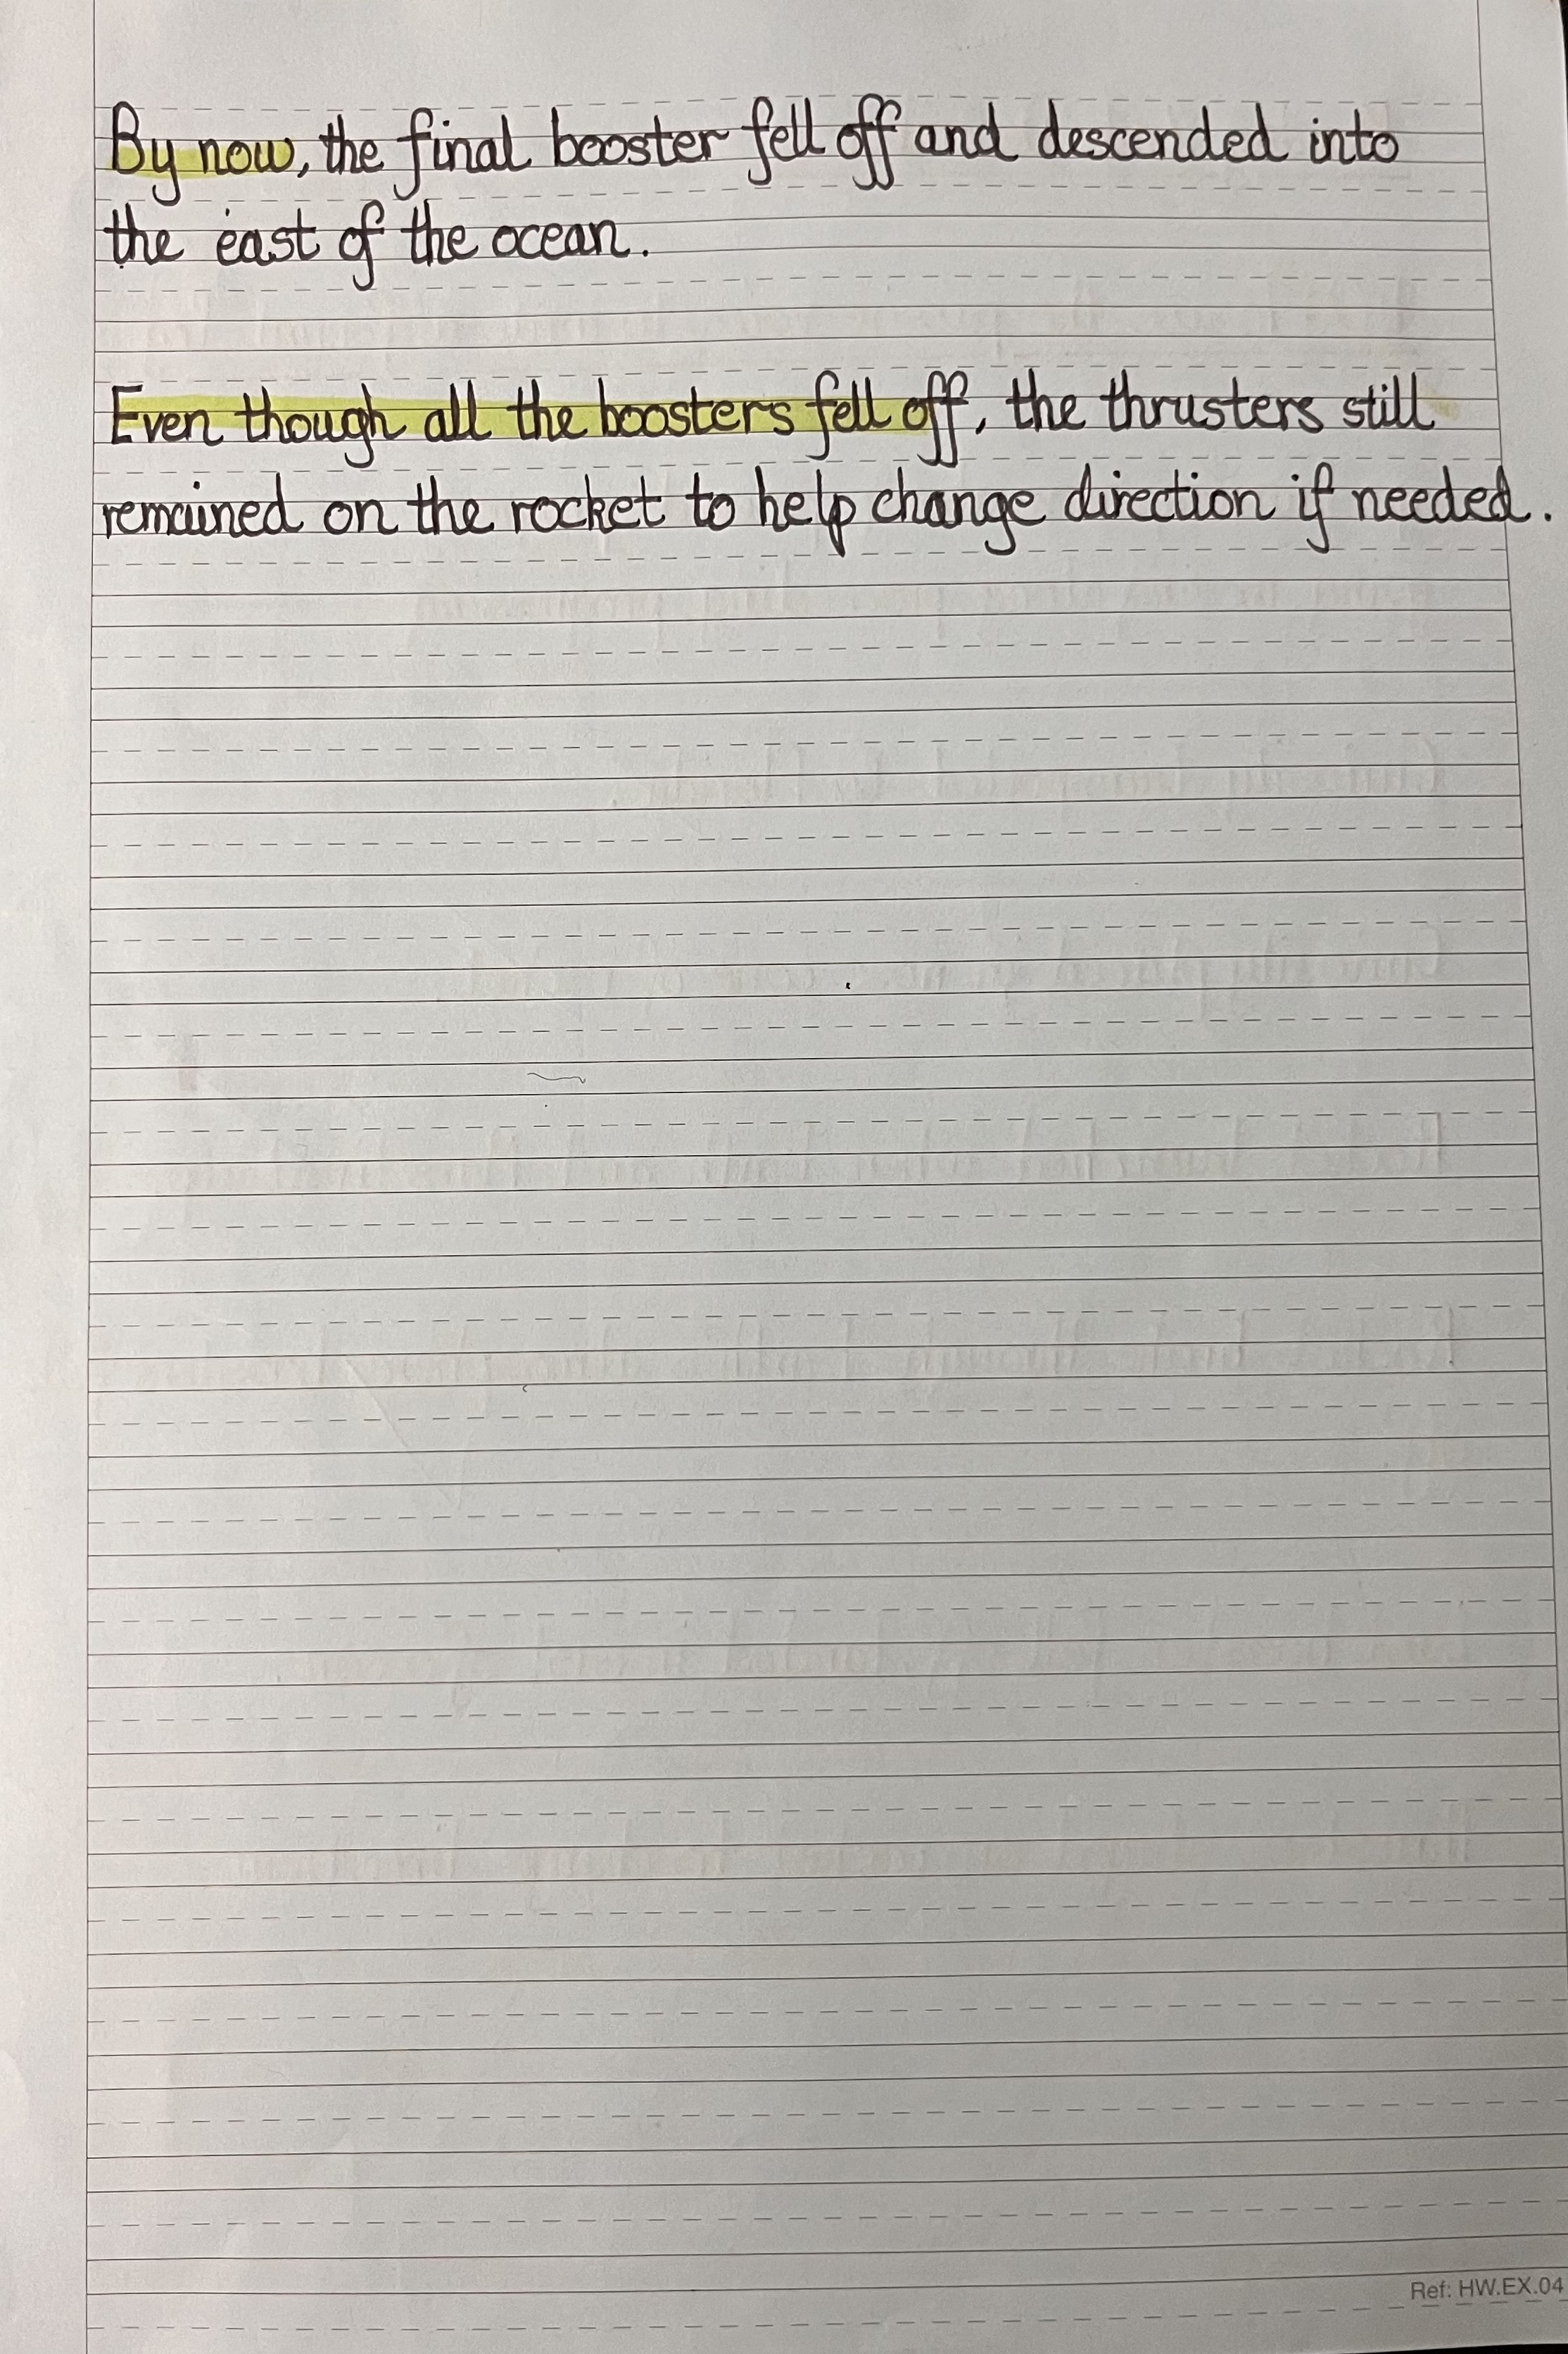 By now, the final booster fell off and descended into
the east of the ocean.
Even though all the boosters fell off, the thrusters still
remained on the rocket to help change direction if needed.
Ref: HW.EX.04